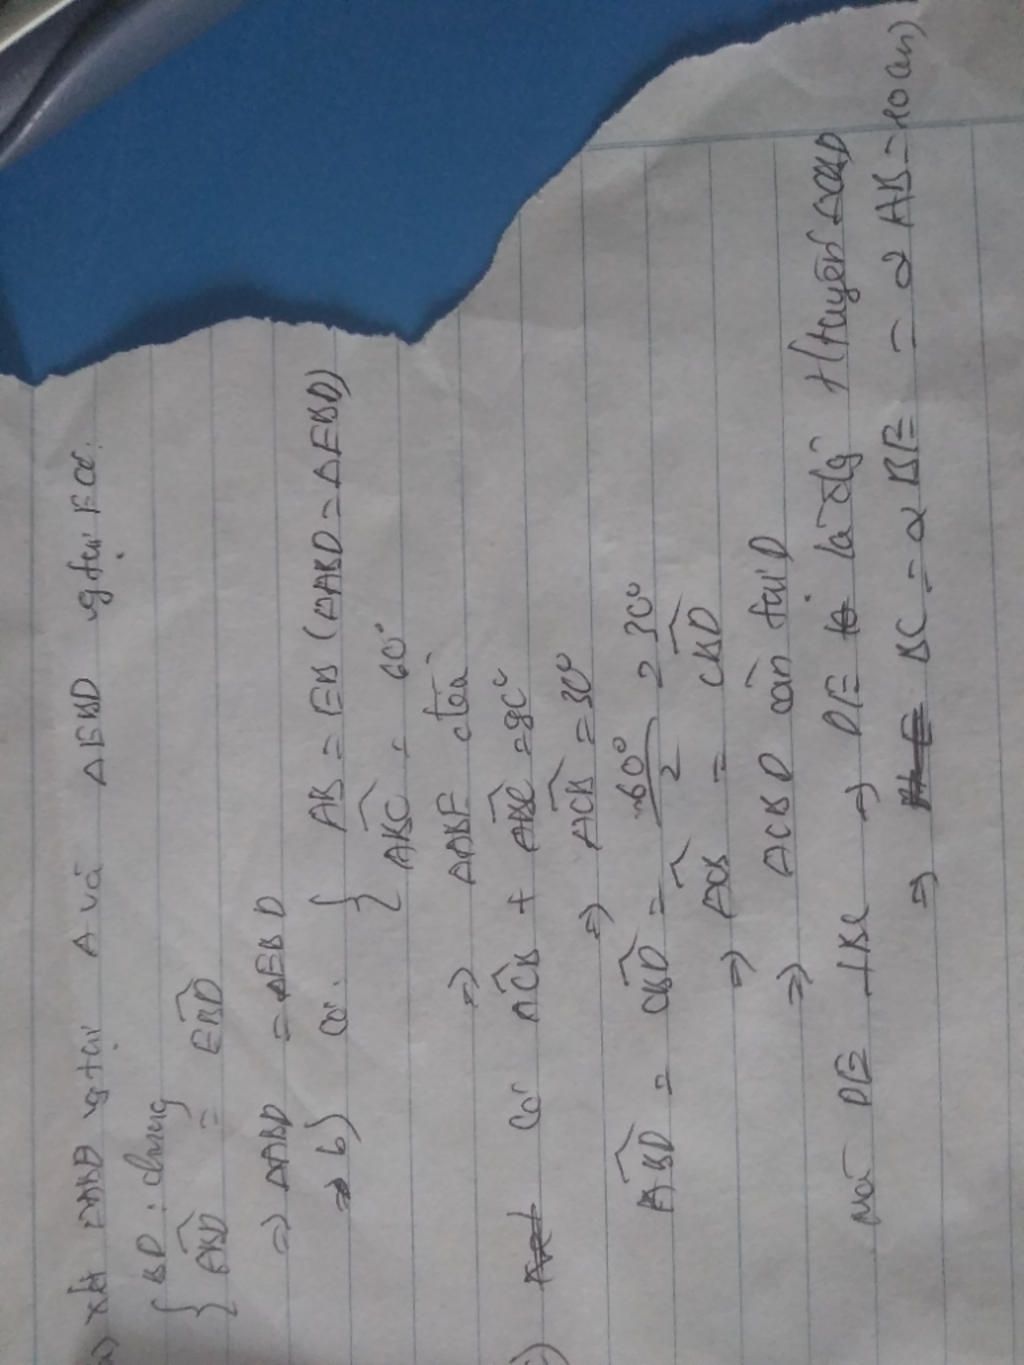 a) xét ΔABD vg tại A và ΔEBD vg tại E có:
{ BD: chung
{ ABD = EBD
=> ΔABD = ΔEBD
=> b) Có: { AB = EB (ΔABD = ΔEBD)
{ ABC = 60°
=> ΔABE đều
có ACB + ABC = 90°
=> ACB = 30°
ABD = CBD = 60°/2 = 30°
=> ACB = CBD
=> ΔCBD cân tại D
mà DE ⊥ BC => DE là đg t/tuyến ΔCBD
=> BC = 2 BE = 2 AB = 10 cm)